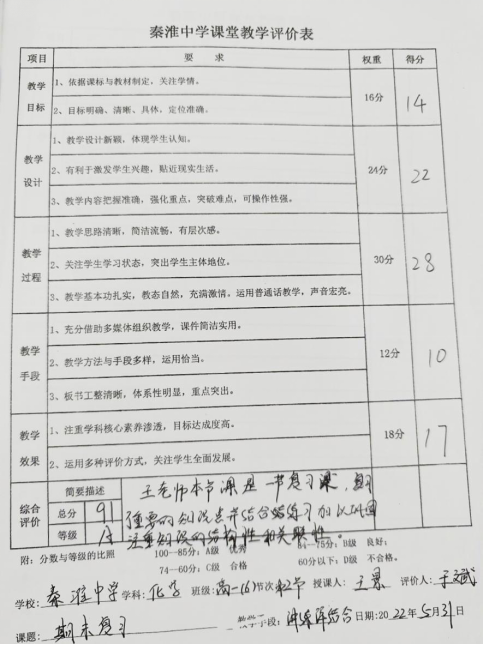 秦淮中学课堂教学评价表
项目 要 求 权重 得分
教学目标 1、依据课标与教材制定，关注学情。 16分 14
2、目标明确、清晰、具体，定位准确。
教学设计 1、教学设计新颖，体现学生认知。 24分 22
2、有利于激发学生兴趣，贴近现实生活。
3、教学内容把握准确，强化重点，突破难点，可操作性强。
教学过程 1、教学思路清晰，简洁流畅，有层次感。 30分 28
2、关注学生学习状态，突出学生主体地位。
3、教学基本功扎实，教态自然，充满激情，运用普通话教学，声音宏亮。
教学手段 1、充分借助多媒体组织教学，课件简洁实用。 12分 10
2、教学方法与手段多样，运用恰当。
3、板书工整清晰，体系性明显，重点突出。
教学效果 1、注重学科核心素养渗透，目标达成度高。 18分 17
2、运用多种评价方式，关注学生全面发展。
综合评价 简要描述 王老师本节课是一节复习课，
总分 91 重要的知识点并结合练习加以巩固
等级 A 注重知识的结构性和关联性。
附：分数与等级的比照 100—85分：A级 优秀 84—75分：B级 良好；
74—60分：C级 合格 60分以下：D级 不合格。
学校：秦淮中学 学科：化学 班级：高一(6) 节次 第2节 授课人： 王 评价人：于文斌
课题：期末复习 教学手段：讲练评结合 日期：2022年5月31日